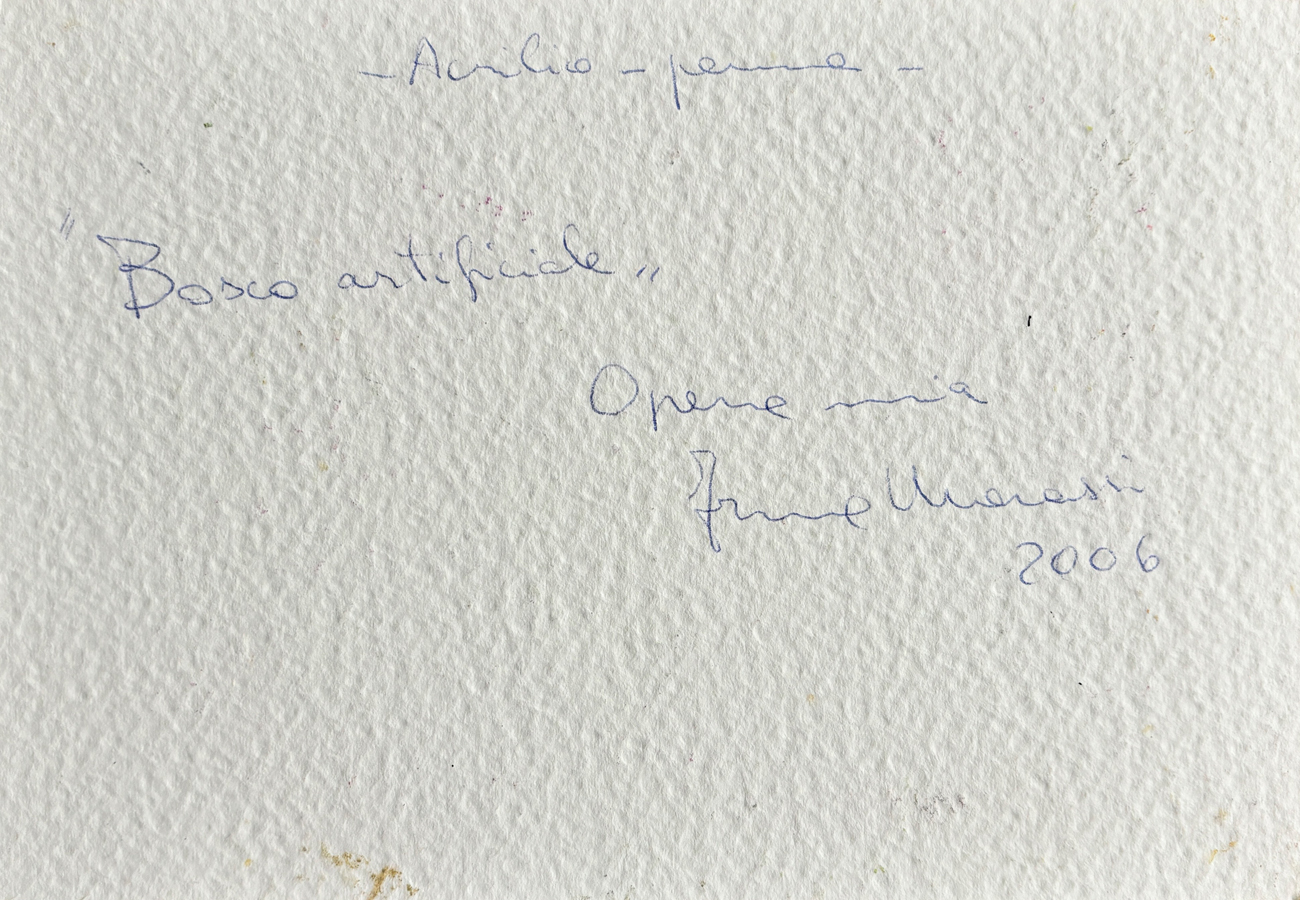 - Acrilio - penna -
"Bosco artificiale"
Opera mia
Morassi
2006